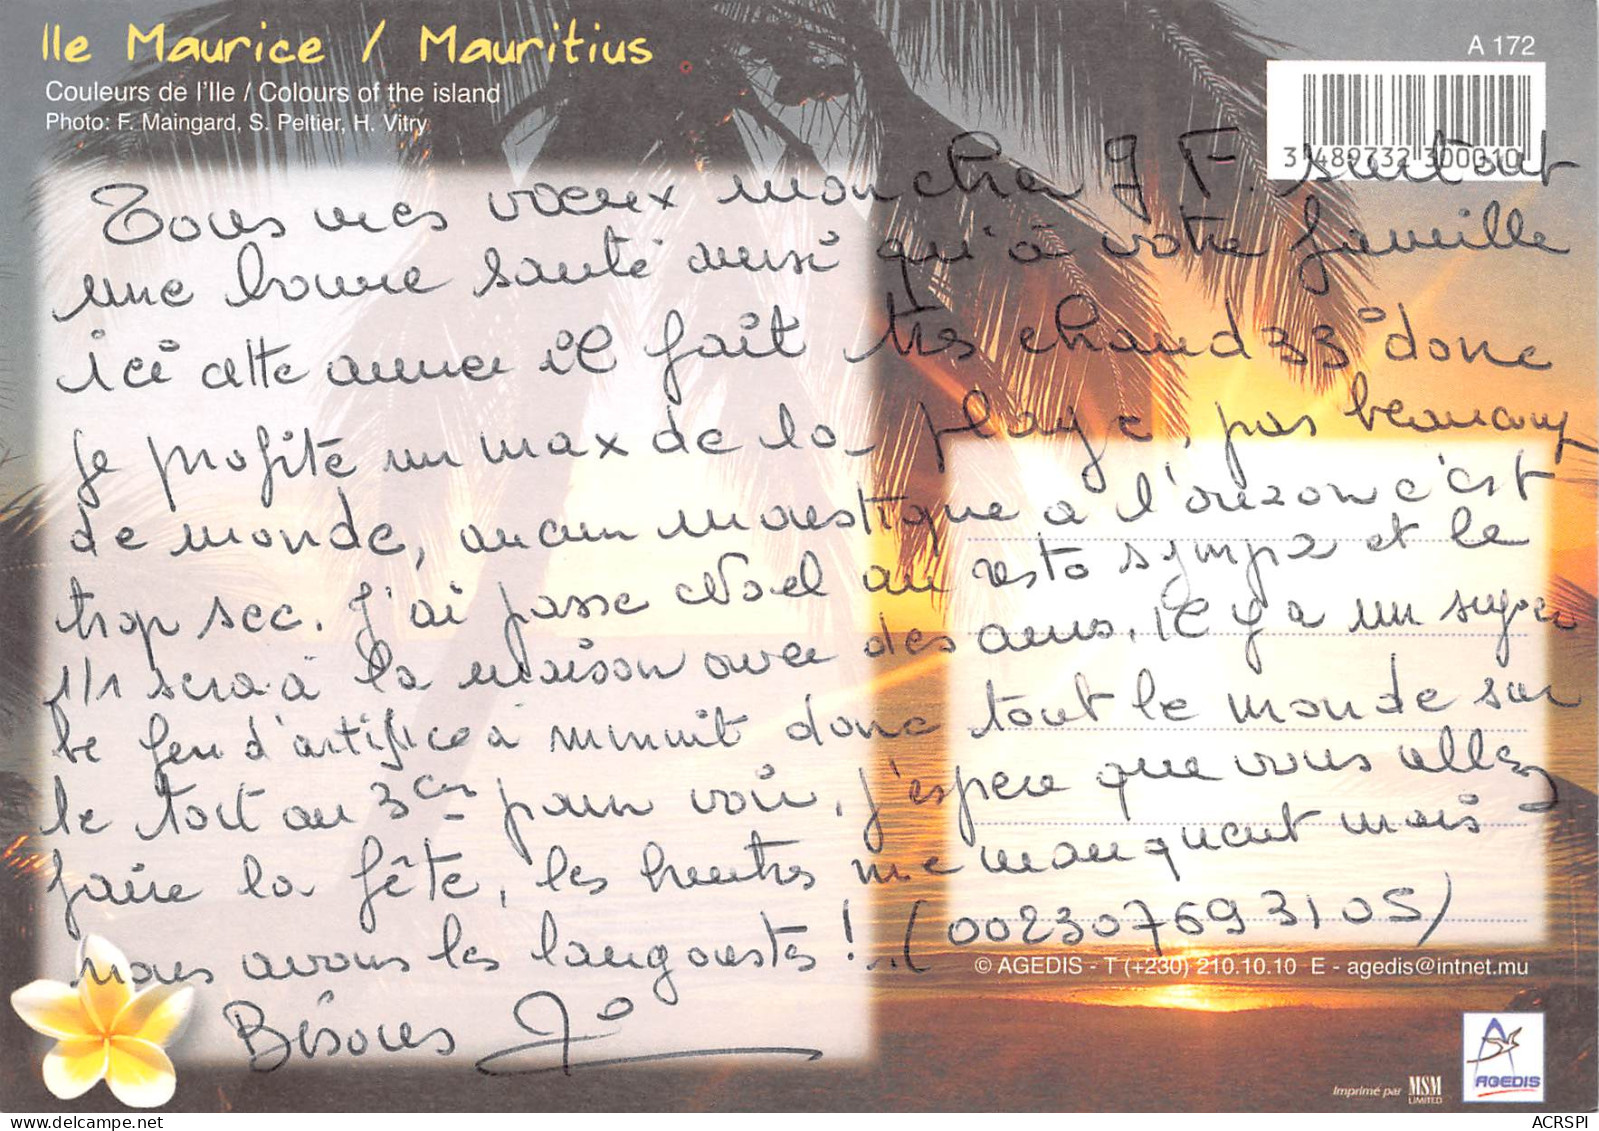 Ile Maurice / Mauritius
A 172
Couleurs de l'Ile / Colours of the island
Photo: F. Maingard, S. Peltier, H. Vitry
3 489732 300010
Tous mes vœux mon cher J F. surtout
une bonne santé ainsi qu'à votre famille
ici cette année il fait très chaud 33° donc
je profite un max de la plage, pas beaucoup
de monde, aucun moustique a l'orizon c'est
trop sec. J'ai passe Noel au resto sympa et le
1/1 sera à la maison avec des amis. Il y a un super
be feu d'artifice à minuit donc tout le monde sur
le toit au 3em pour voir, j'espère que vous allez
faire la fête, les huitres me manquent mais
nous avons les langoustes !..(002307693105)
Bisous Jo
© AGEDIS - T (+230) 210.10.10 E - agedis@intnet.mu
Imprimé par MSM LIMITED
AGEDIS
ACRSPI